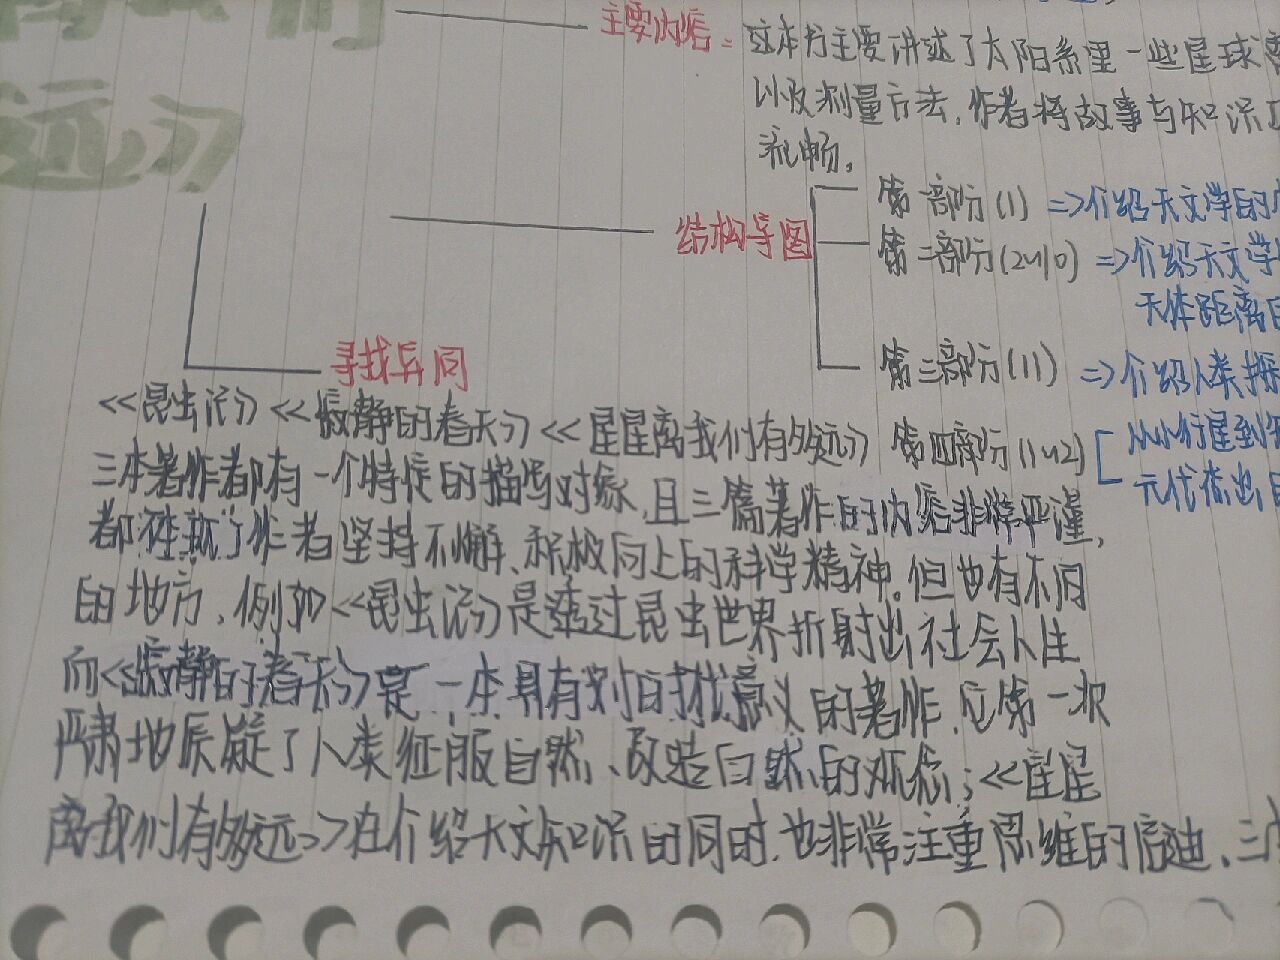 我们
远》
主要内容：这本书主要讲述了太阳系里一些星球离
以及测量方法，作者将故事与知识
流畅。
结构导图
第一部分(1) =>介绍天文学的
第二部分(2~10) =>介绍天文学
天体距离
第三部分(11) =>介绍人类探
第四部分(12)
从小行星到
元代
寻找异同
<<昆虫记>> <<寂静的春天>> <<星星离我们有多远>>
三本著作都有一个特定的描写对象，且三篇著作的内容非常严谨，
都体现了作者坚持不懈、积极向上的科学精神。但也有不同
的地方，例如<<昆虫记>>是透过昆虫世界折射出社会人生
而<<寂静的春天>>是一本具有划时代意义的著作，它第一次
严肃地质疑了人类征服自然、改造自然的观念；<<星星
离我们有多远>>在介绍天文知识的同时，也非常注重思维的启迪，三